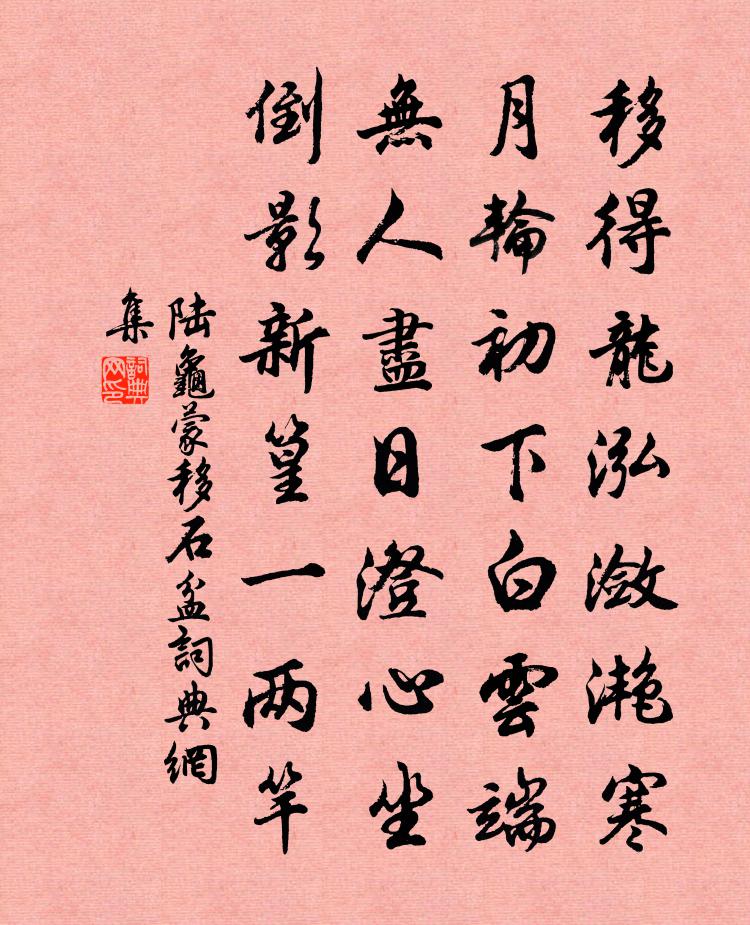 移得龍泓瀲灔寒
月輪初下白雲端
無人盡日澄心坐
倒影新篁一两竿
陆龜蒙移石盆詞典網
集
詞典
网印